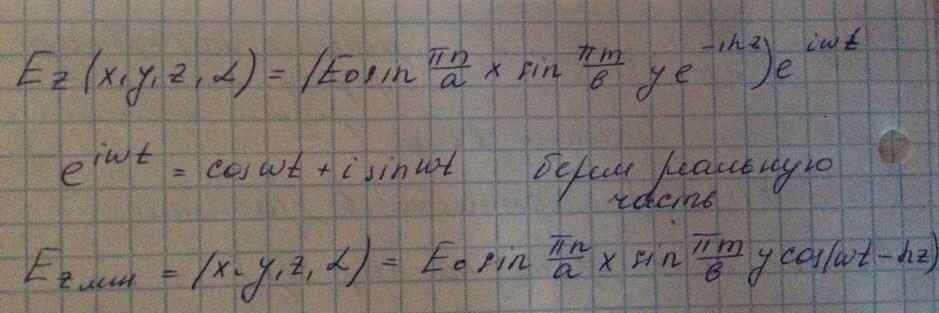 Ez (x, y, z, t) = (E₀ sin πn/a x sin πm/b y e^(-ihz)) e^(iωt)
e^(iωt) = cos ωt + i sin ωt берем реальную
часть
Ez мгн = (x, y, z, t) = E₀ sin πn/a x sin πm/b y cos(ωt - hz)